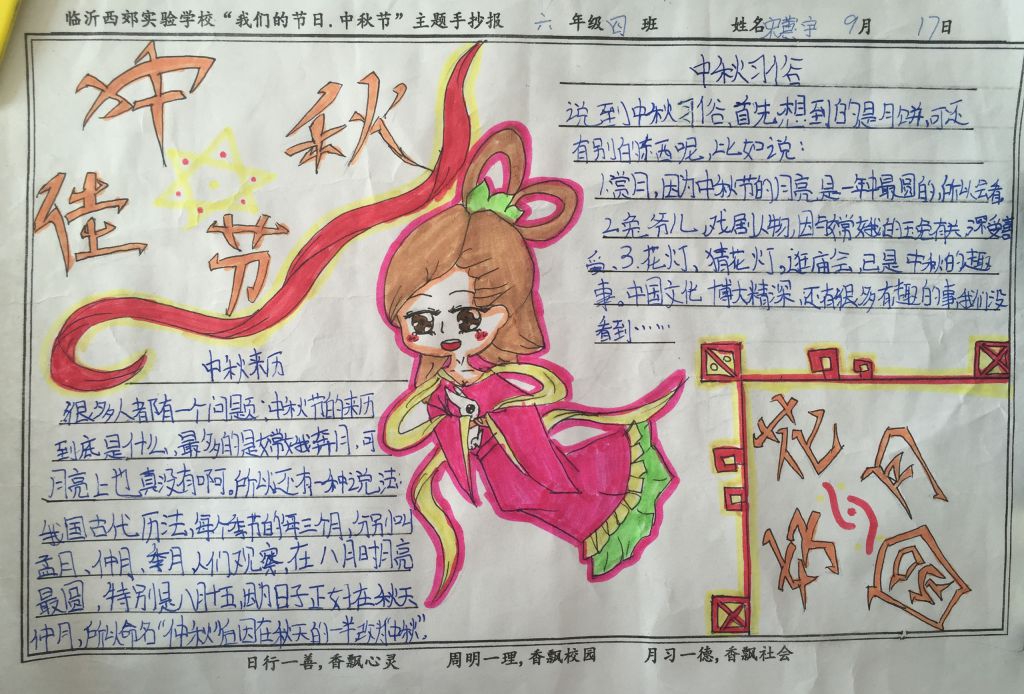 临沂西郊实验学校“我们的节日.中秋节”主题手抄报 六 年级 四 班 姓名 宋 宇 9月 17日
中秋
佳节
中秋来历
很多人都有一个问题:中秋节的来历
到底是什么,最多的是嫦娥奔月,可
月亮上也真没有啊。所以还有一种说法:
我国古代历法,每个季节的每三个月,分别叫
孟月、仲月、季月,人们观察,在八月时月亮
最圆,特别是八月十五,因为日子正好在秋天
仲月,所以命名“仲秋”后因在秋天的一半改为“中秋”。
中秋习俗
说到中秋习俗,首先想到的是月饼,可还
有别的东西呢,比如说:
1.赏月,因为中秋节的月亮是一年中最圆的,所以会看。
2.兔爷儿,戏剧人物,因与嫦娥的玉兔有关,深受喜
爱。3.花灯,猜花灯,逛庙会,已是中秋的趣
事。中国文化博大精深,还有很多有趣的事我们没
看到……
花好
月圆
日行一善,香飘心灵 周明一理,香飘校园 月习一德,香飘社会